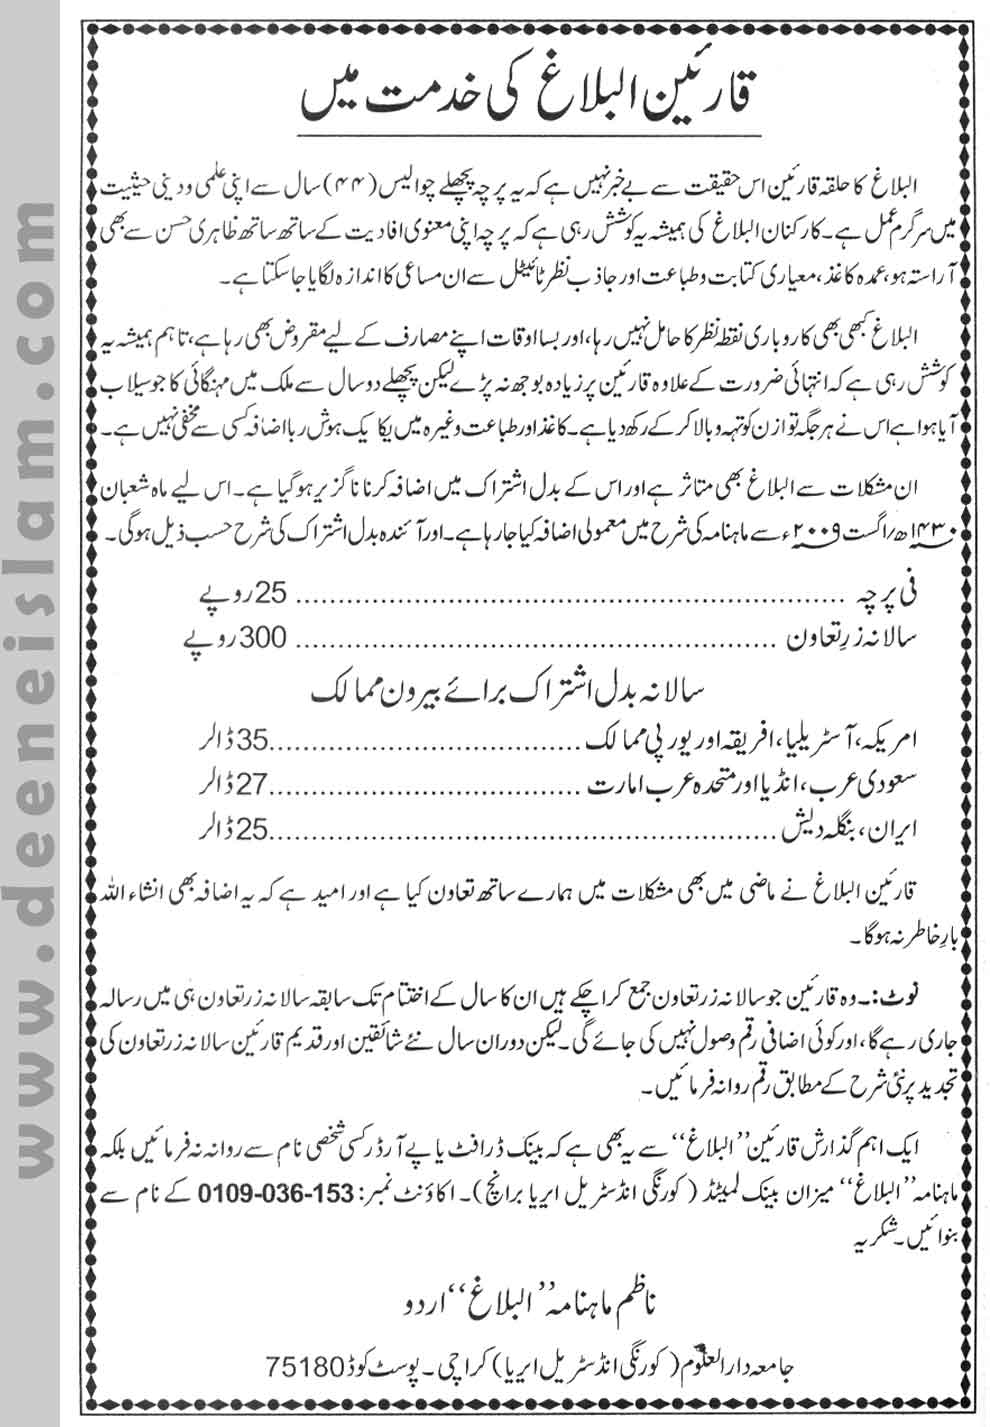 قارئین البلاغ کی خدمت میں
البلاغ کا حلقہ قارئین اس حقیقت سے بے خبر نہیں ہے کہ یہ پرچہ پچھلے چوالیس (۴۴) سال سے اپنی علمی و دینی حیثیت
میں سرگرم عمل ہے۔ کارکنان البلاغ کی ہمیشہ یہ کوشش رہی ہے کہ پرچہ اپنی معنوی افادیت کے ساتھ ساتھ ظاہری حسن سے بھی
آراستہ ہو، عمدہ کاغذ، معیاری کتابت و طباعت اور جاذب نظر ٹائیٹل سے ان مساعی کا اندازہ لگایا جا سکتا ہے۔
البلاغ کبھی بھی کاروباری نقطہ نظر کا حامل نہیں رہا، اور بسا اوقات اپنے مصارف کے لیے مقروض بھی رہا ہے، تاہم ہمیشہ یہ
کوشش رہی ہے کہ انتہائی ضرورت کے علاوہ قارئین پر زیادہ بوجھ نہ پڑے لیکن پچھلے دو سال سے ملک میں مہنگائی کا جو سیلاب
آیا ہوا ہے اس نے ہر جگہ توازن کو تہہ و بالا کر کے رکھ دیا ہے۔ کاغذ اور طباعت وغیرہ میں یکایک ہوش ربا اضافہ کسی سے مخفی نہیں ہے۔
ان مشکلات سے البلاغ بھی متاثر ہے اور اس کے بدل اشتراک میں اضافہ کرنا ناگزیر ہو گیا ہے۔ اس لیے ماہ شعبان
۱۴۳۰ھ/اگست ۲۰۰۹ء سے ماہنامہ کی شرح میں معمولی اضافہ کیا جا رہا ہے۔ اور آئندہ بدل اشتراک کی شرح حسب ذیل ہوگی۔
فی پرچہ ........................................ 25 روپے
سالانہ زرِ تعاون ........................................ 300 روپے
سالانہ بدل اشتراک برائے بیرون ممالک
امریکہ، آسٹریلیا، افریقہ اور یورپی ممالک ........................................ 35 ڈالر
سعودی عرب، انڈیا اور متحدہ عرب امارت ........................................ 27 ڈالر
ایران، بنگلہ دیش ........................................ 25 ڈالر
قارئین البلاغ نے ماضی میں بھی مشکلات میں ہمارے ساتھ تعاون کیا ہے اور امید ہے کہ یہ اضافہ بھی انشاء اللہ
بارِ خاطر نہ ہوگا۔
نوٹ:۔ وہ قارئین جو سالانہ زر تعاون جمع کرا چکے ہیں ان کا سال کے اختتام تک سابقہ سالانہ زر تعاون ہی میں رسالہ
جاری رہے گا، اور کوئی اضافی رقم وصول نہیں کی جائے گی۔ لیکن دوران سال نئے شائقین اور قدیم قارئین سالانہ زر تعاون کی
تجدید پر نئی شرح کے مطابق رقم روانہ فرمائیں۔
ایک اہم گذارش قارئین ”البلاغ“ سے یہ بھی ہے کہ بینک ڈرافٹ یا پے آرڈر کسی شخصی نام سے روانہ نہ فرمائیں بلکہ
ماہنامہ ”البلاغ“ میزان بینک لمیٹڈ (کورنگی انڈسٹریل ایریا برانچ)۔ اکاؤنٹ نمبر: 0109-036-153 کے نام سے
بنوائیں۔ شکریہ
ناظم ماہنامہ ”البلاغ“ اردو
جامعہ دارالعلوم (کورنگی انڈسٹریل ایریا) کراچی۔ پوسٹ کوڈ 75180
www.deeneislam.com